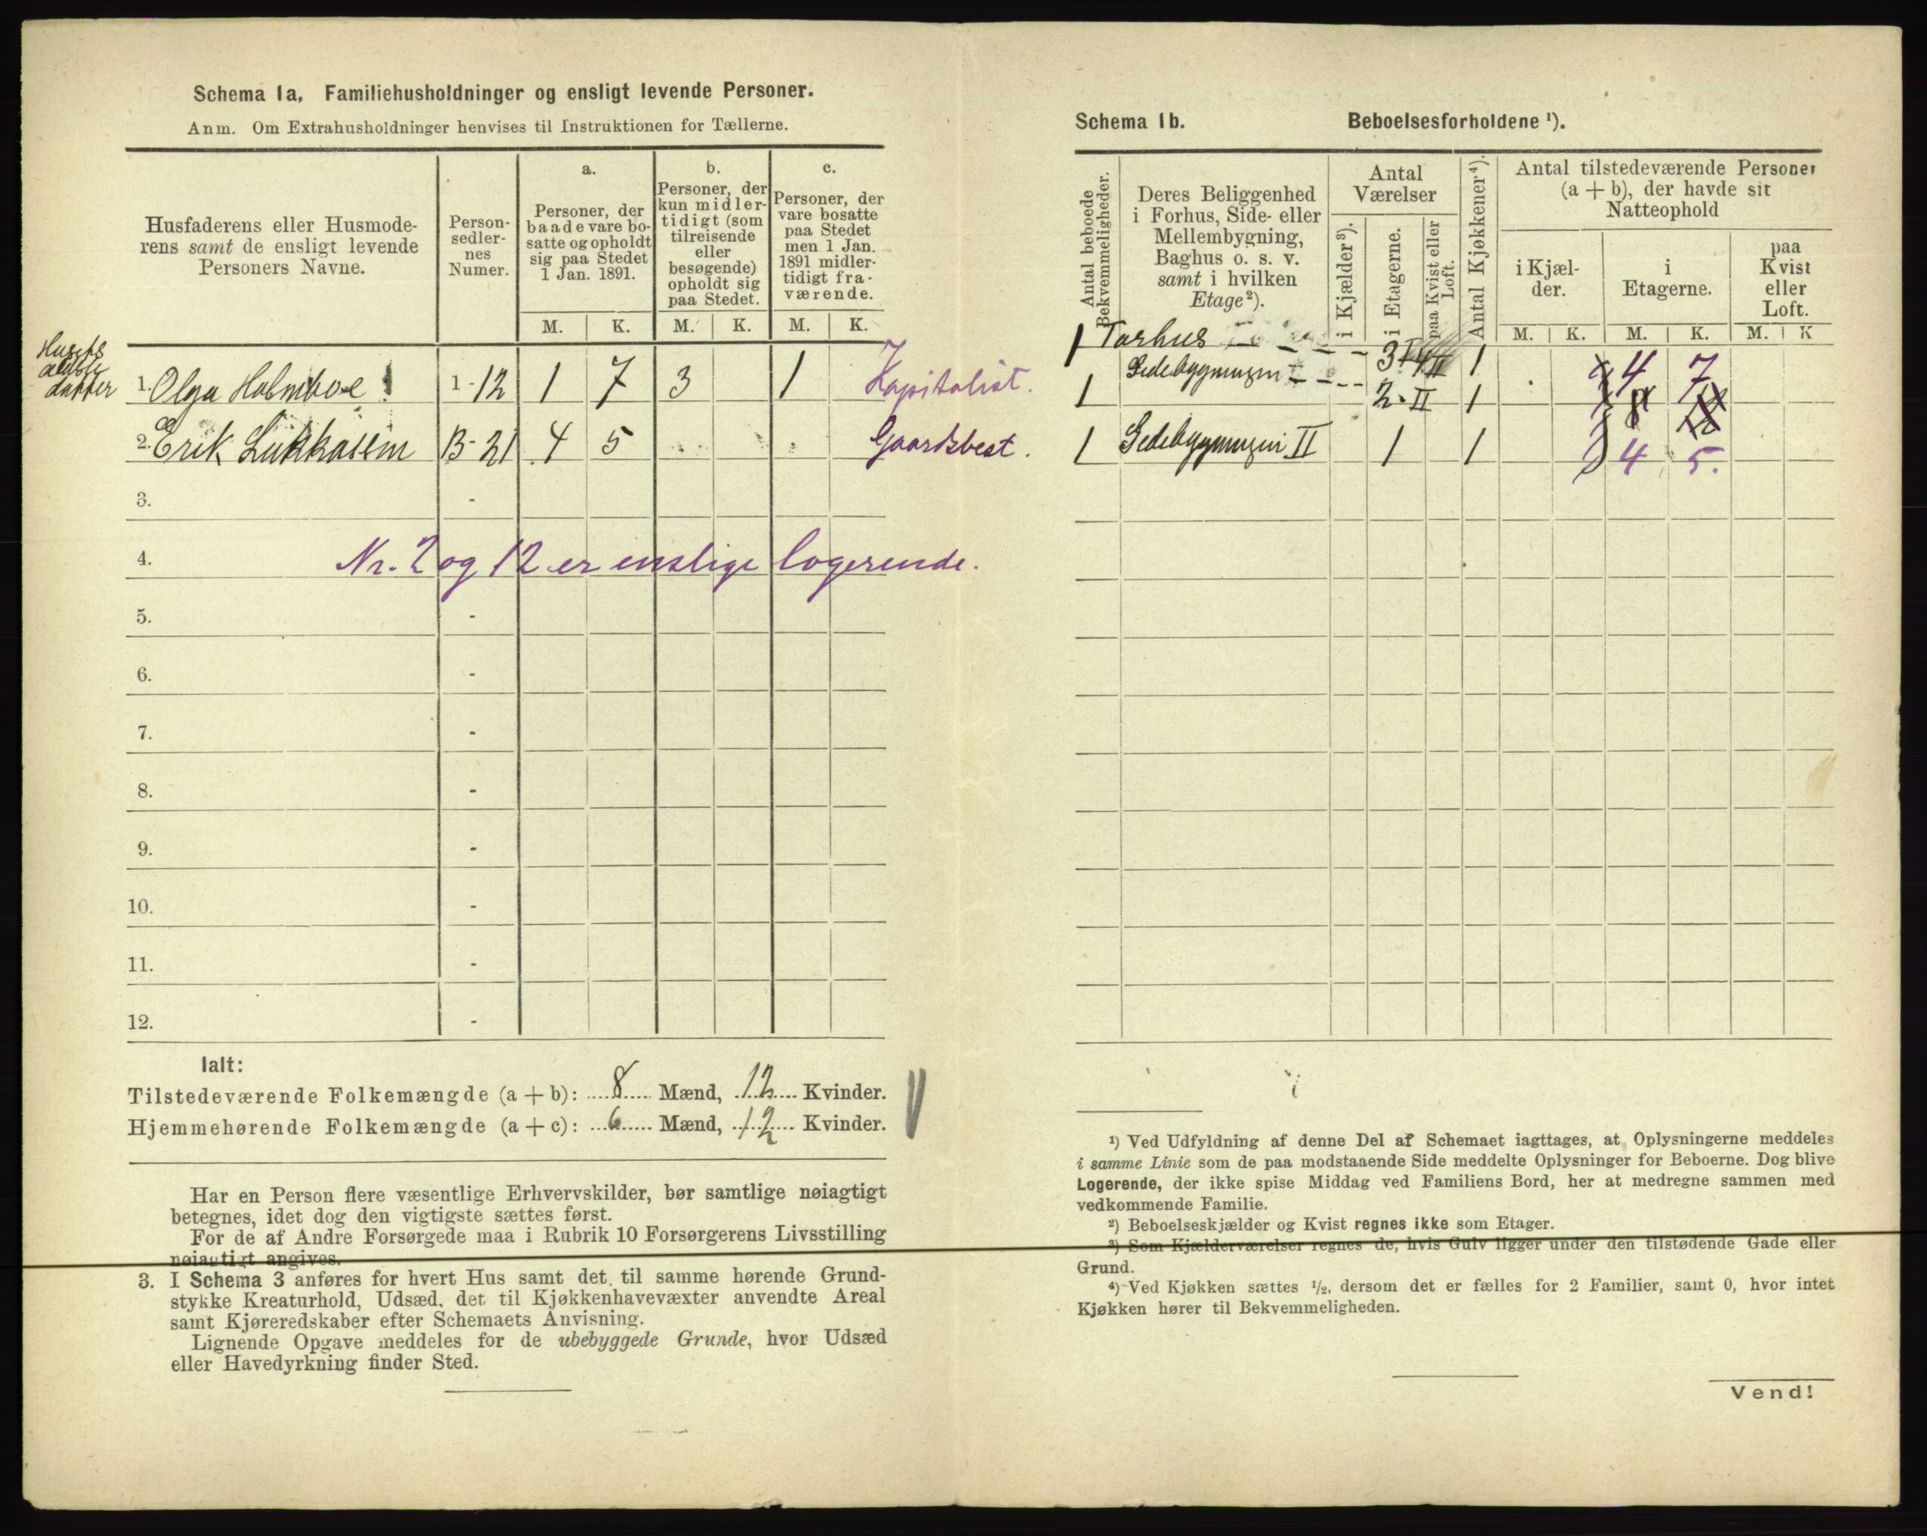 Schema 1a. Familiehusholdninger og ensligt levende Personer.
Anm. Om Extrahusholdninger henvises til Instruktionen for Tællerne.
Husfaderens eller Husmode-
rens samt de ensligt levende
Personers Navne.
Person-
sedler-
nes
Numer.
a.
Personer, der
baade vare bo-
satte og opholdt
sig paa Stedet
1 Jan. 1891.
b.
Personer, der
kun midler-
tidigt (som
tilreisende
eller
besøgende)
opholdt sig
paa Stedet.
c.
Personer, der
vare bosatte
paa Stedet
men 1 Jan.
1891 midler-
tidigt fra-
værende.
M. K. M. K. M. K.
Husets
ældste
datter
1. Olga Holmboe 1 - 12 1 7 3 1 Kapitalist.
2. Erik Lukkasen 13 - 21 4 5 Gaardsbest.
3. -
4. Nr. 2 og 12 er enslige logerende.
5. -
6. -
7. -
8. -
9. -
10. -
11. -
12. -
Ialt:
Tilstedeværende Folkemængde (a + b): 8 Mænd, 12 Kvinder.
Hjemmehørende Folkemængde (a + c): 6 Mænd, 12 Kvinder.
Har en Person flere væsentlige Erhvervskilder, bør samtlige nøiagtigt
betegnes, idet dog den vigtigste sættes først.
For de af Andre Forsørgede maa i Rubrik 10 Forsørgerens Livsstilling
nøiagtigt angives.
3. I Schema 3 anføres for hvert Hus samt det til samme hørende Grund-
stykke Kreaturhold, Udsæd, det til Kjøkkenhavevæxter anvendte Areal
samt Kjøreredskaber efter Schemaets Anvisning.
Lignende Opgave meddeles for de ubebyggede Grunde, hvor Udsæd
eller Havedyrkning finder Sted.
Schema 1b. Beboelsesforholdene ¹).
Antal beboede
Bekvemmeligheder.
Deres Beliggenhed
i Forhus, Side- eller
Mellembygning,
Baghus o. s. v.
samt i hvilken
Etage ²).
Antal
Værelser
i Kjælder ³).
i Etagerne.
paa Kvist eller
Loft.
Antal Kjøkkener ⁴).
Antal tilstedeværende Personer
(a + b), der havde sit
Natteophold
i Kjæl-
der.
i
Etagerne.
paa
Kvist
eller
Loft.
M. K. M. K. M. K
1 Forhus 3 I 1
1 Sidebygningen I 2 II 1 4 7
1 Sidebygningen II 1 1 4 5.
¹) Ved Udfyldning af denne Del af Schemaet iagttages, at Oplysningerne meddeles
i samme Linie som de paa modstaaende Side meddelte Oplysninger for Beboerne. Dog blive
Logerende, der ikke spise Middag ved Familiens Bord, her at medregne sammen med
vedkommende Familie.
²) Beboelseskjælder og Kvist regnes ikke som Etager.
³) Som Kjælderværelser regnes de, hvis Gulv ligger under den tilstødende Gade eller
Grund.
⁴) Ved Kjøkken sættes ½, dersom det er fælles for 2 Familier, samt 0, hvor intet
Kjøkken hører til Bekvemmeligheden.
Vend!